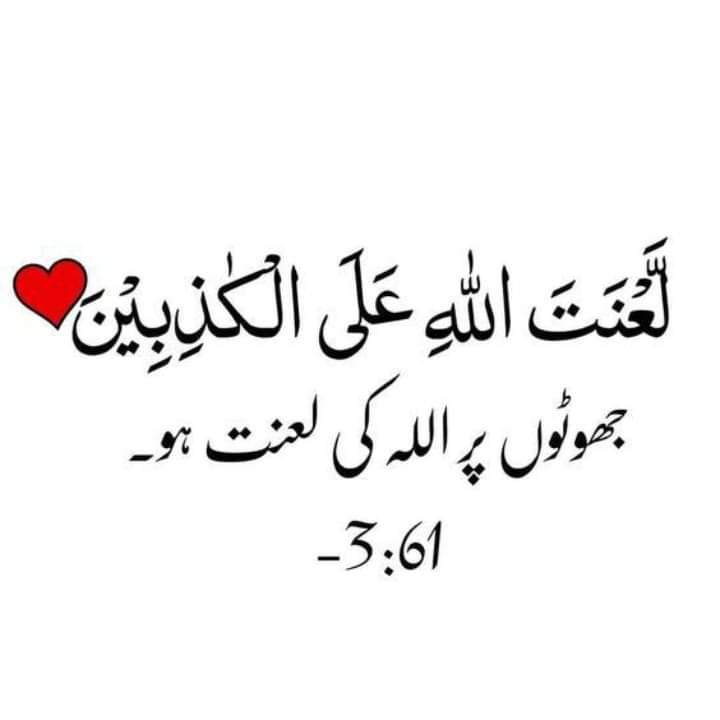 لَّعْنَتَ اللّٰهِ عَلَى الْكٰذِبِيْنَ
جھوٹوں پر اللہ کی لعنت ہو۔
-3:61